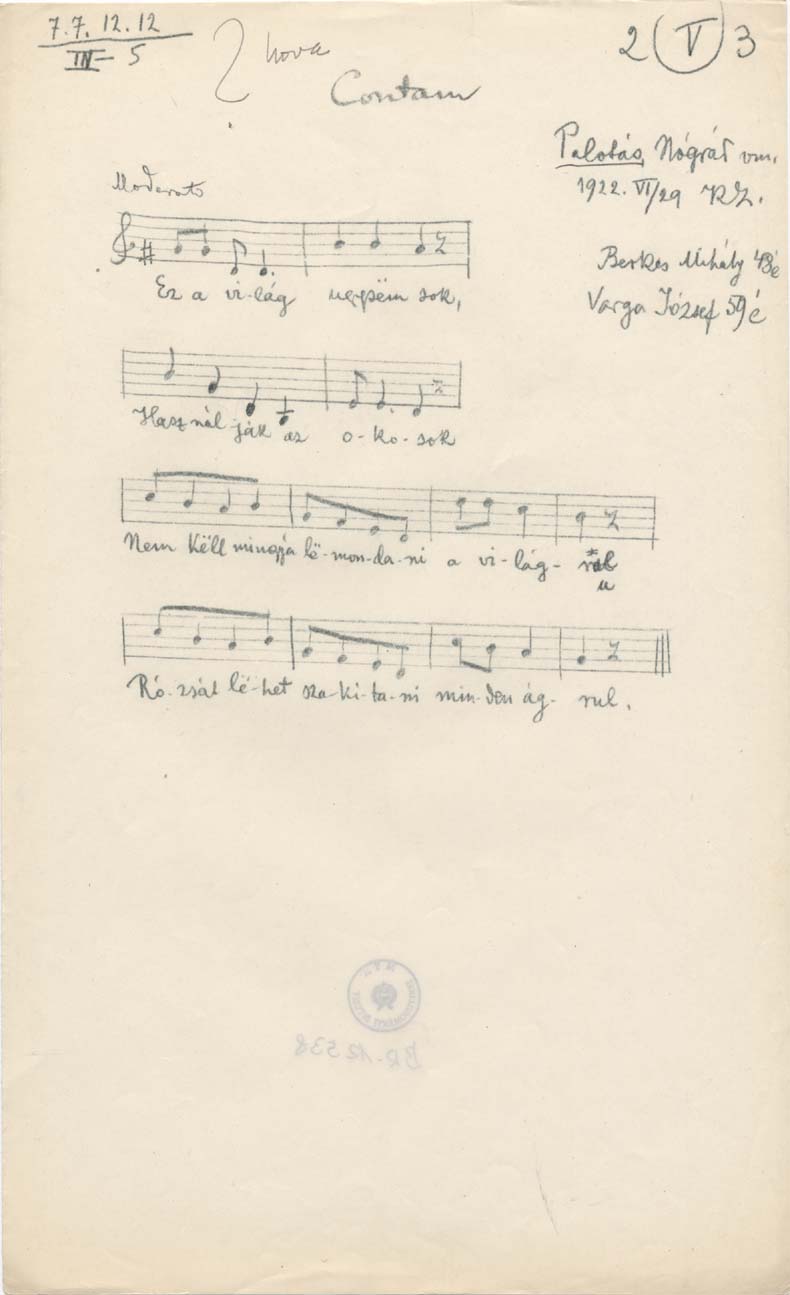 7.7.12.12
III- 5
? hova
2 V 3
Contam
Palotás, Nógrád vm.
1922. VI/29
Moderato
Berkes Mihály 48 é
Varga József 59 é
Ez a vi-lág sok,
Hasz-nál-ják az o-ko-sok
Nem këll mingyá lë-mon-da-ni a vi-lág-
u
Ró-zsát lë-het sza-ki-ta-ni min-den ág- rul.
BR-12538